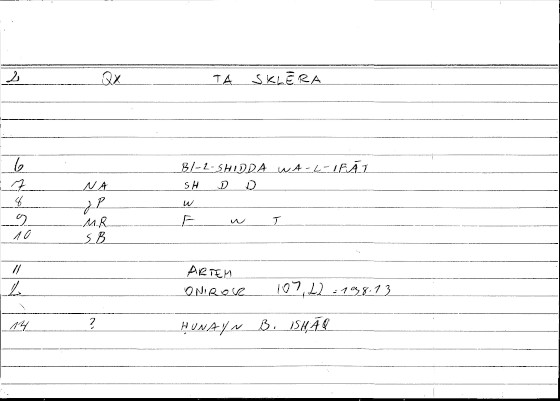 2 QX TA SKLĒRA
6 BI-L-SHIDDA WA-L-IFĀT
7 NA SH D D
8 JP W
9 MR F W T
10 SB
11 ARTEM
12 ONIROCR 107,22 = 198.13
14 ? ḤUNAYN B. ISḤĀQ